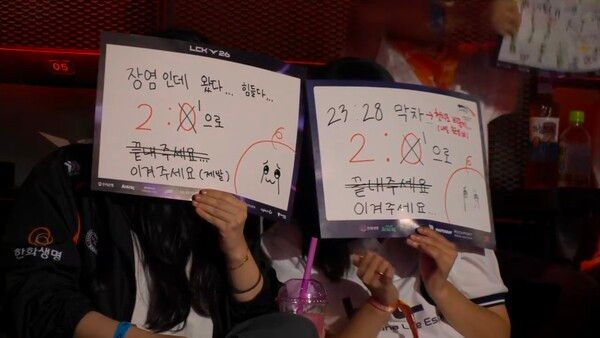 05
LCK 26
장염인데 왔다... 힘들다...
2:0 1 으로
끝내주세요...
이겨주세요 (제발)
23:28 막차
2:0 1 으로
끝내주세요
이겨주세요...
한화생명